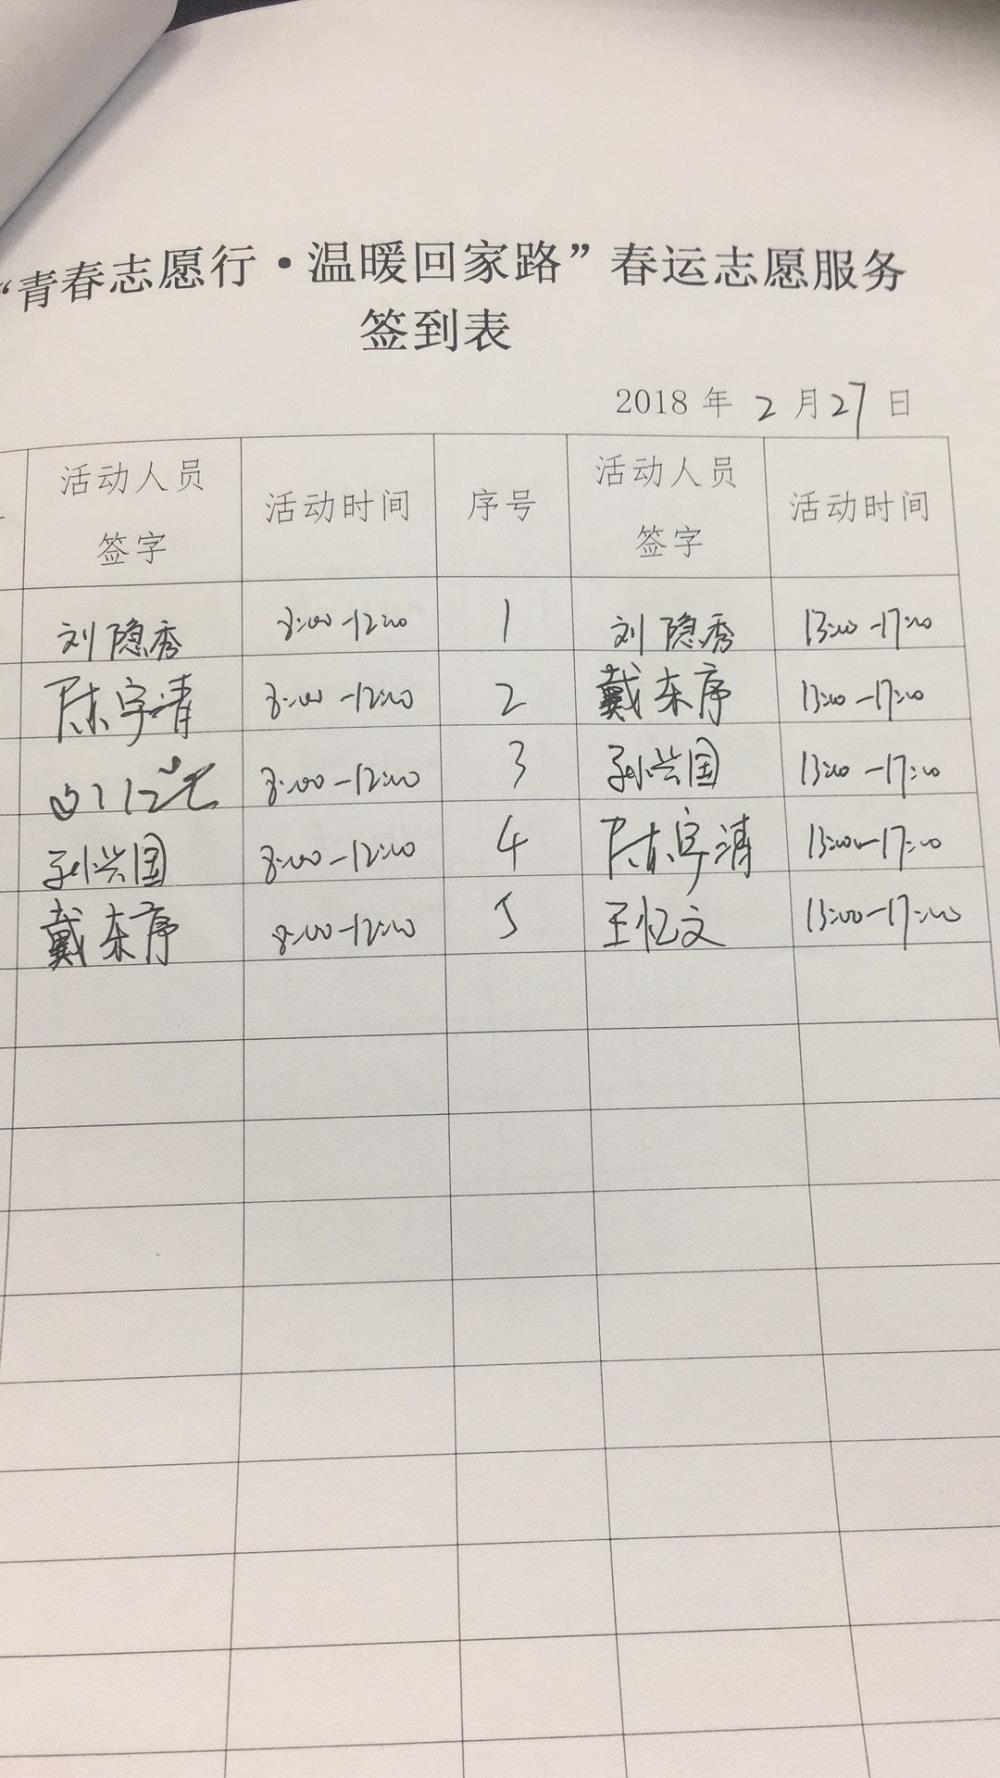 “青春志愿行·温暖回家路”春运志愿服务
签到表
2018 年 2 月 27 日
活动人员签字 活动时间 序号 活动人员签字 活动时间
刘隐秀 8:00-12:00 1 刘隐秀 13:00-17:00
陈宇清 8:00-12:00 2 戴东序 13:00-17:00
8:00-12:00 3 孙兴国 13:00-17:00
孙兴国 8:00-12:00 4 陈宇清 13:00-17:00
戴东序 8:00-12:00 5 王忆文 13:00-17:00